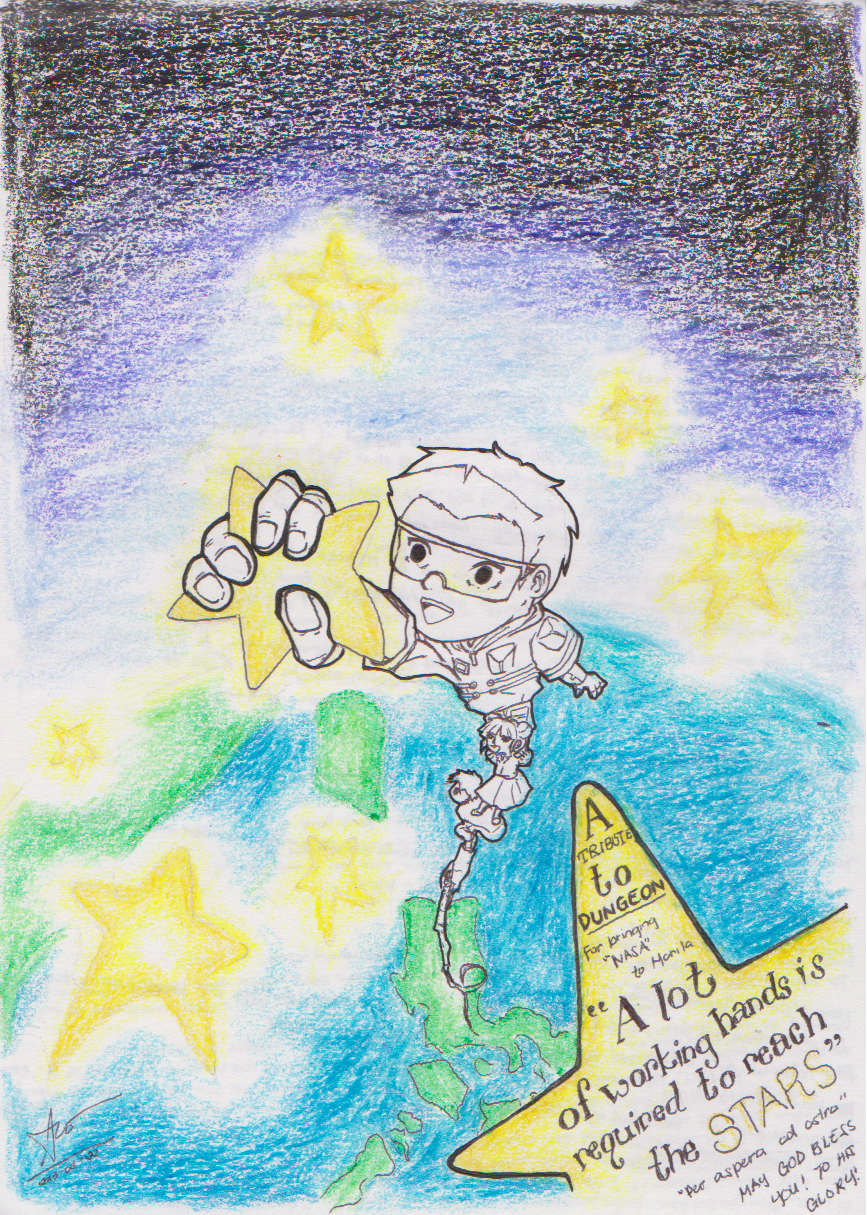 A
TRIBUTE
to
DUNGEON
For bringing
"NASA"
to Manila
"A lot
of working hands is
required to reach
the STARS"
"Per aspera ad astra"
MAY GOD BLESS
YOU! TO HIS
GLORY!